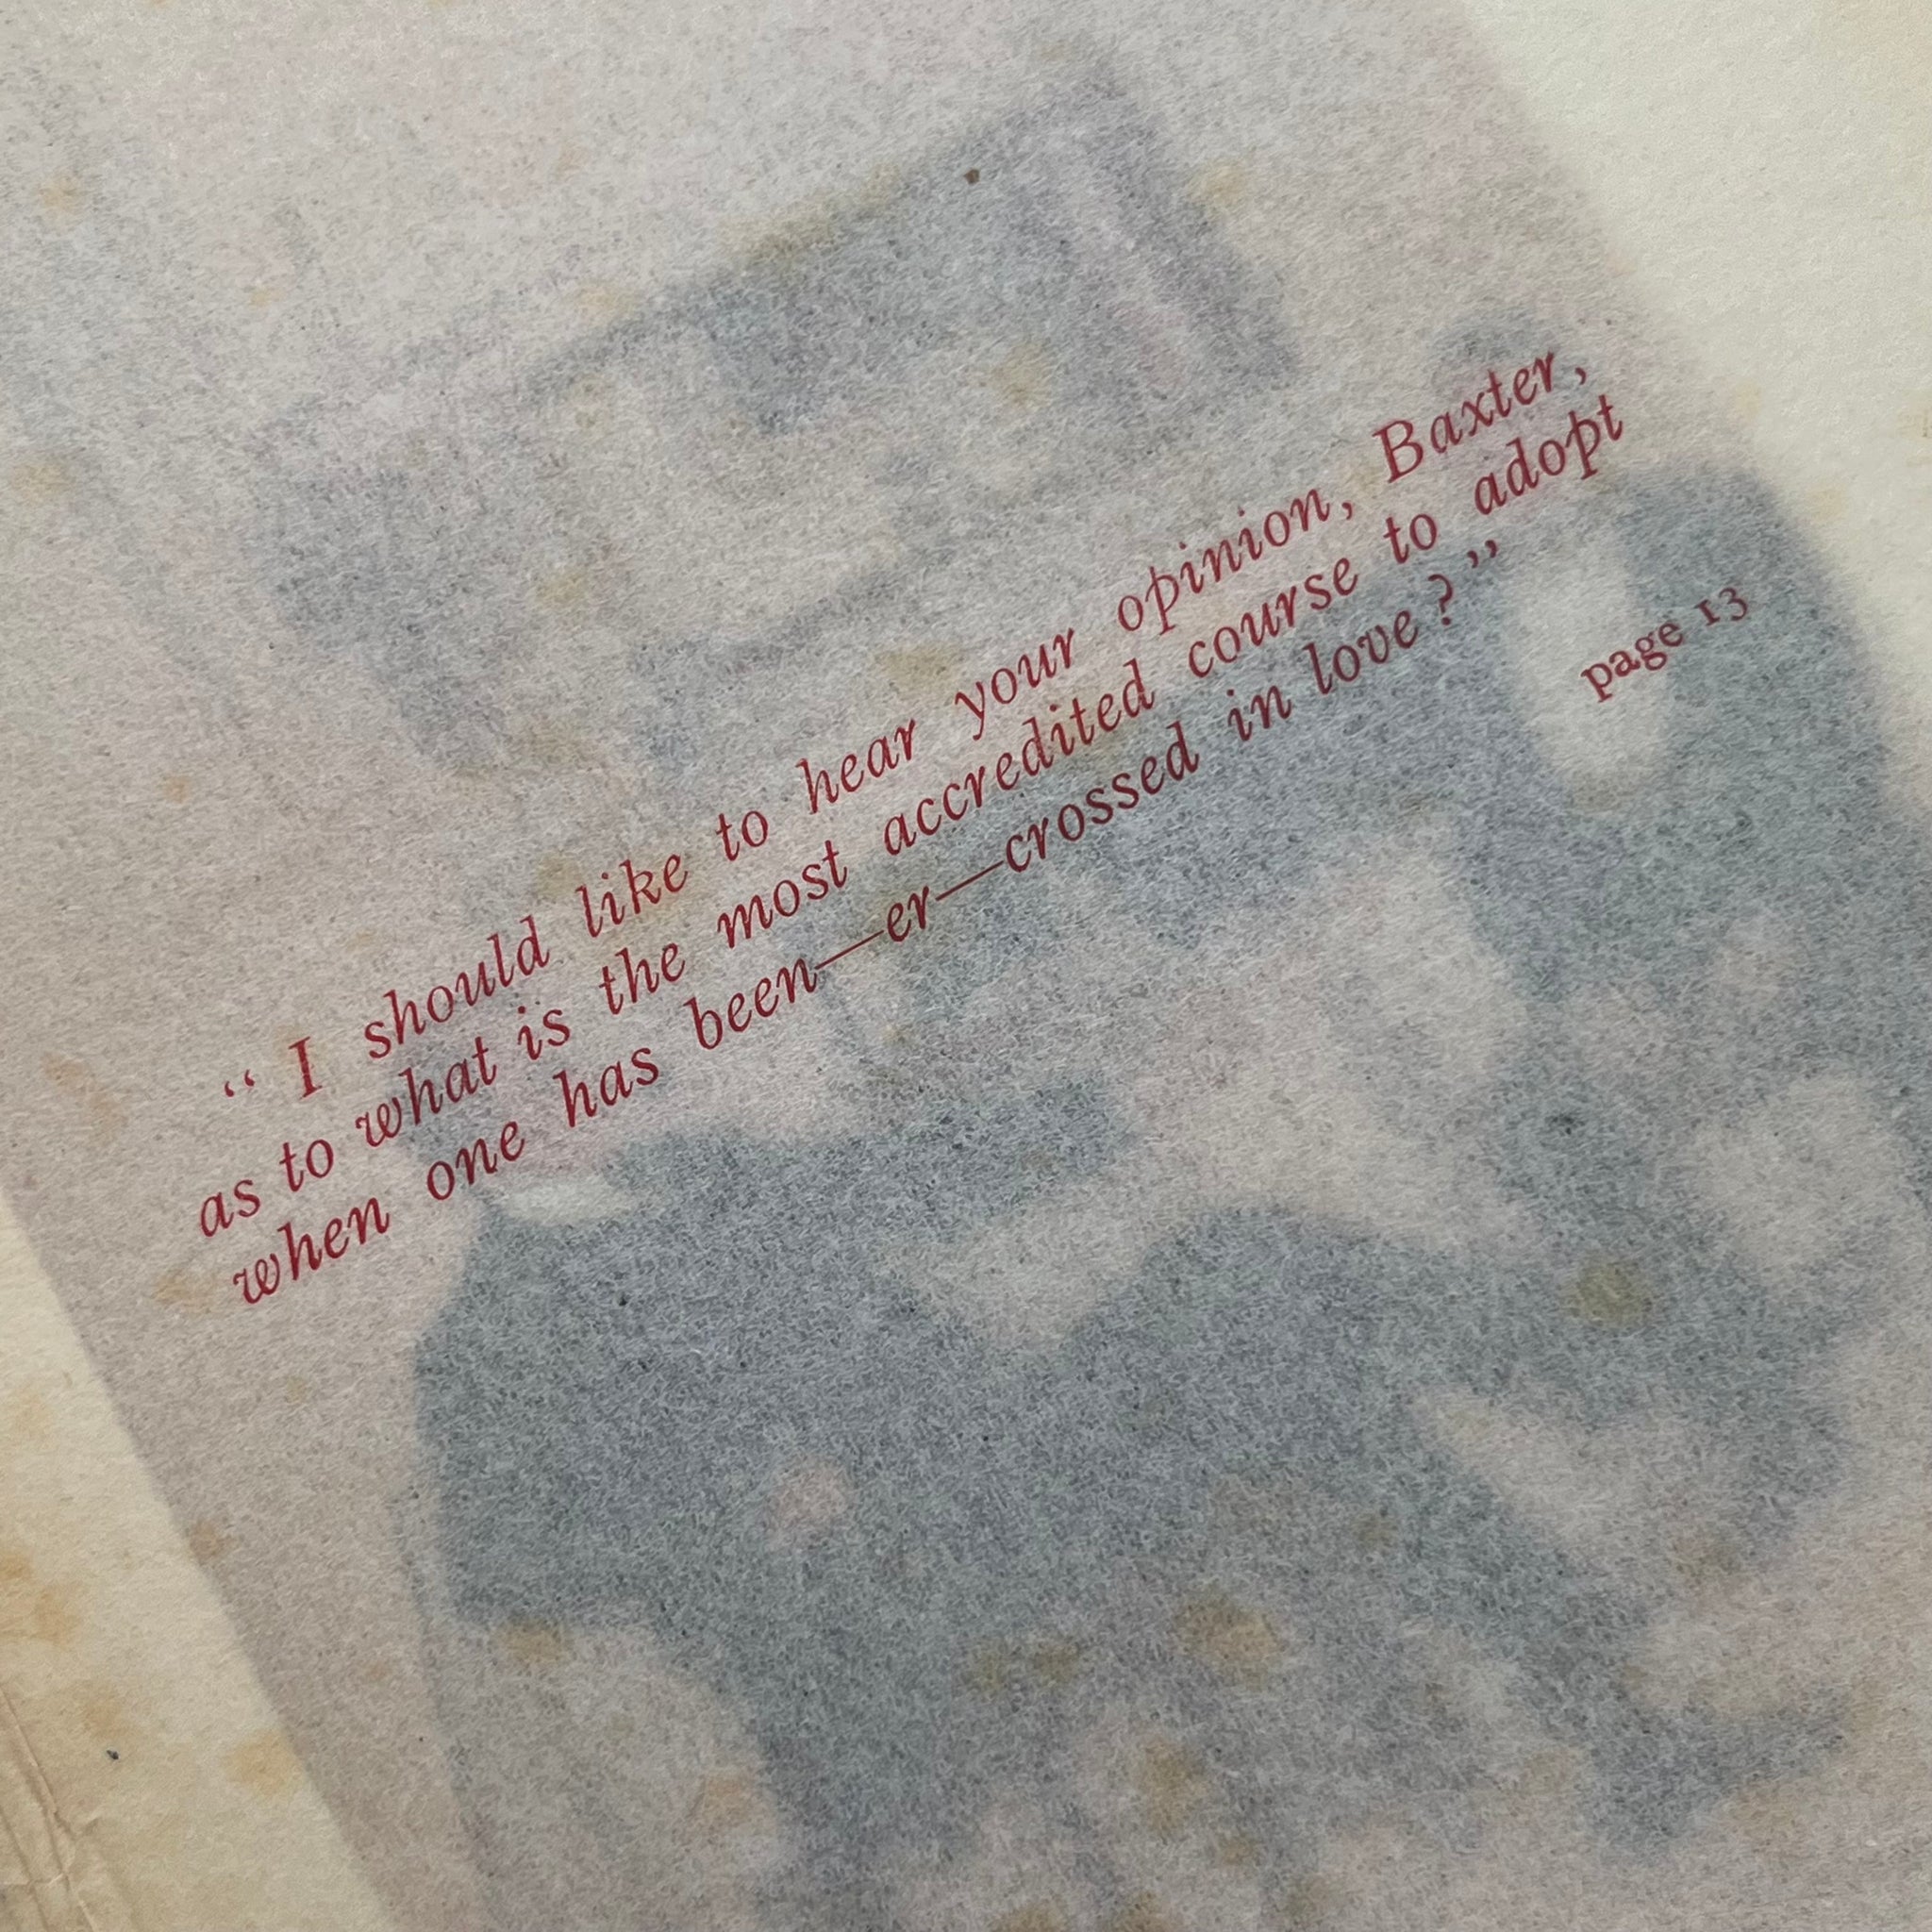 “ I should like to hear your opinion, Baxter,
as to what is the most accredited course to adopt
when one has been—er—crossed in love ? ”
page 13